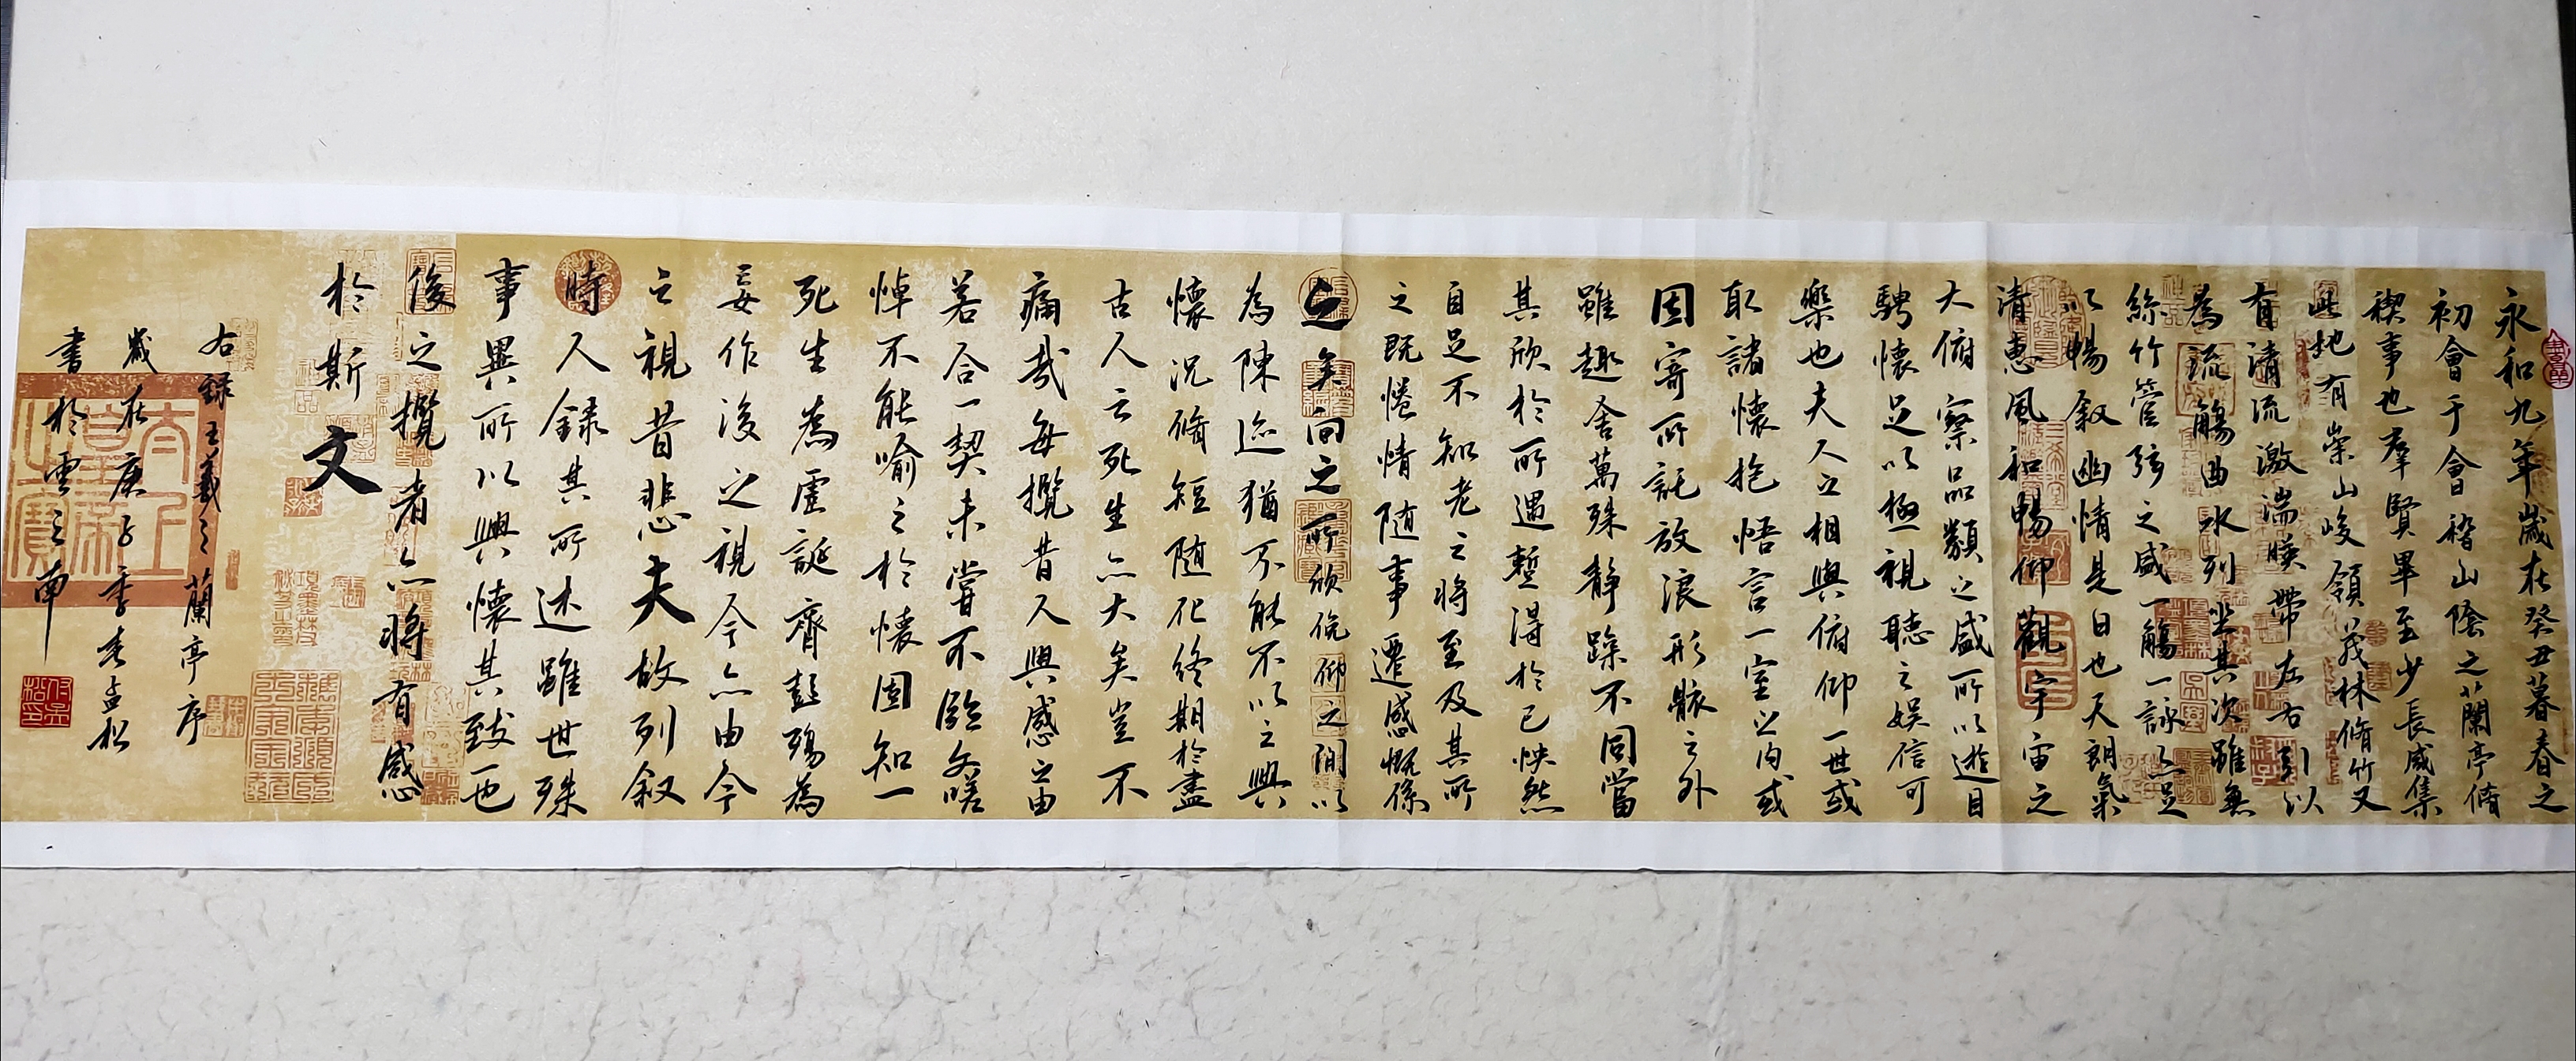 永和九年歲在癸丑暮春之
初會于會稽山陰之蘭亭脩
禊事也羣賢畢至少長咸集
此地有崇山峻領茂林脩竹又
有清流激湍暎帶左右引以
為流觴曲水列坐其次雖無
絲竹管弦之盛一觴一詠亦足
以暢叙幽情是日也天朗氣
清惠風和暢仰觀宇宙之
大俯察品類之盛所以遊目
騁懷足以極視聽之娛信可
樂也夫人之相與俯仰一世或
取諸懷抱悟言一室之內或
因寄所託放浪形骸之外
雖趣舍萬殊静躁不同當
其欣於所遇蹔得於己怏然
自足不知老之將至及其所
之既惓情随事遷感慨係
之矣向之所欣俛仰之閒以
為陳迹猶不能不以之興
懷況脩短随化終期於盡
古人云死生亦大矣豈不
痛哉每攬昔人興感之由
若合一契未嘗不臨文嗟
悼不能喻之於懷固知一
死生為虛誕齊彭殤為
妄作後之視今亦由今
之視昔悲夫故列叙
時人錄其所述雖世殊
事異所以興懷其致一也
後之攬者亦將有感
於斯文
右錄王羲之蘭亭序
歲在庚子季春孟松
書於雲之南